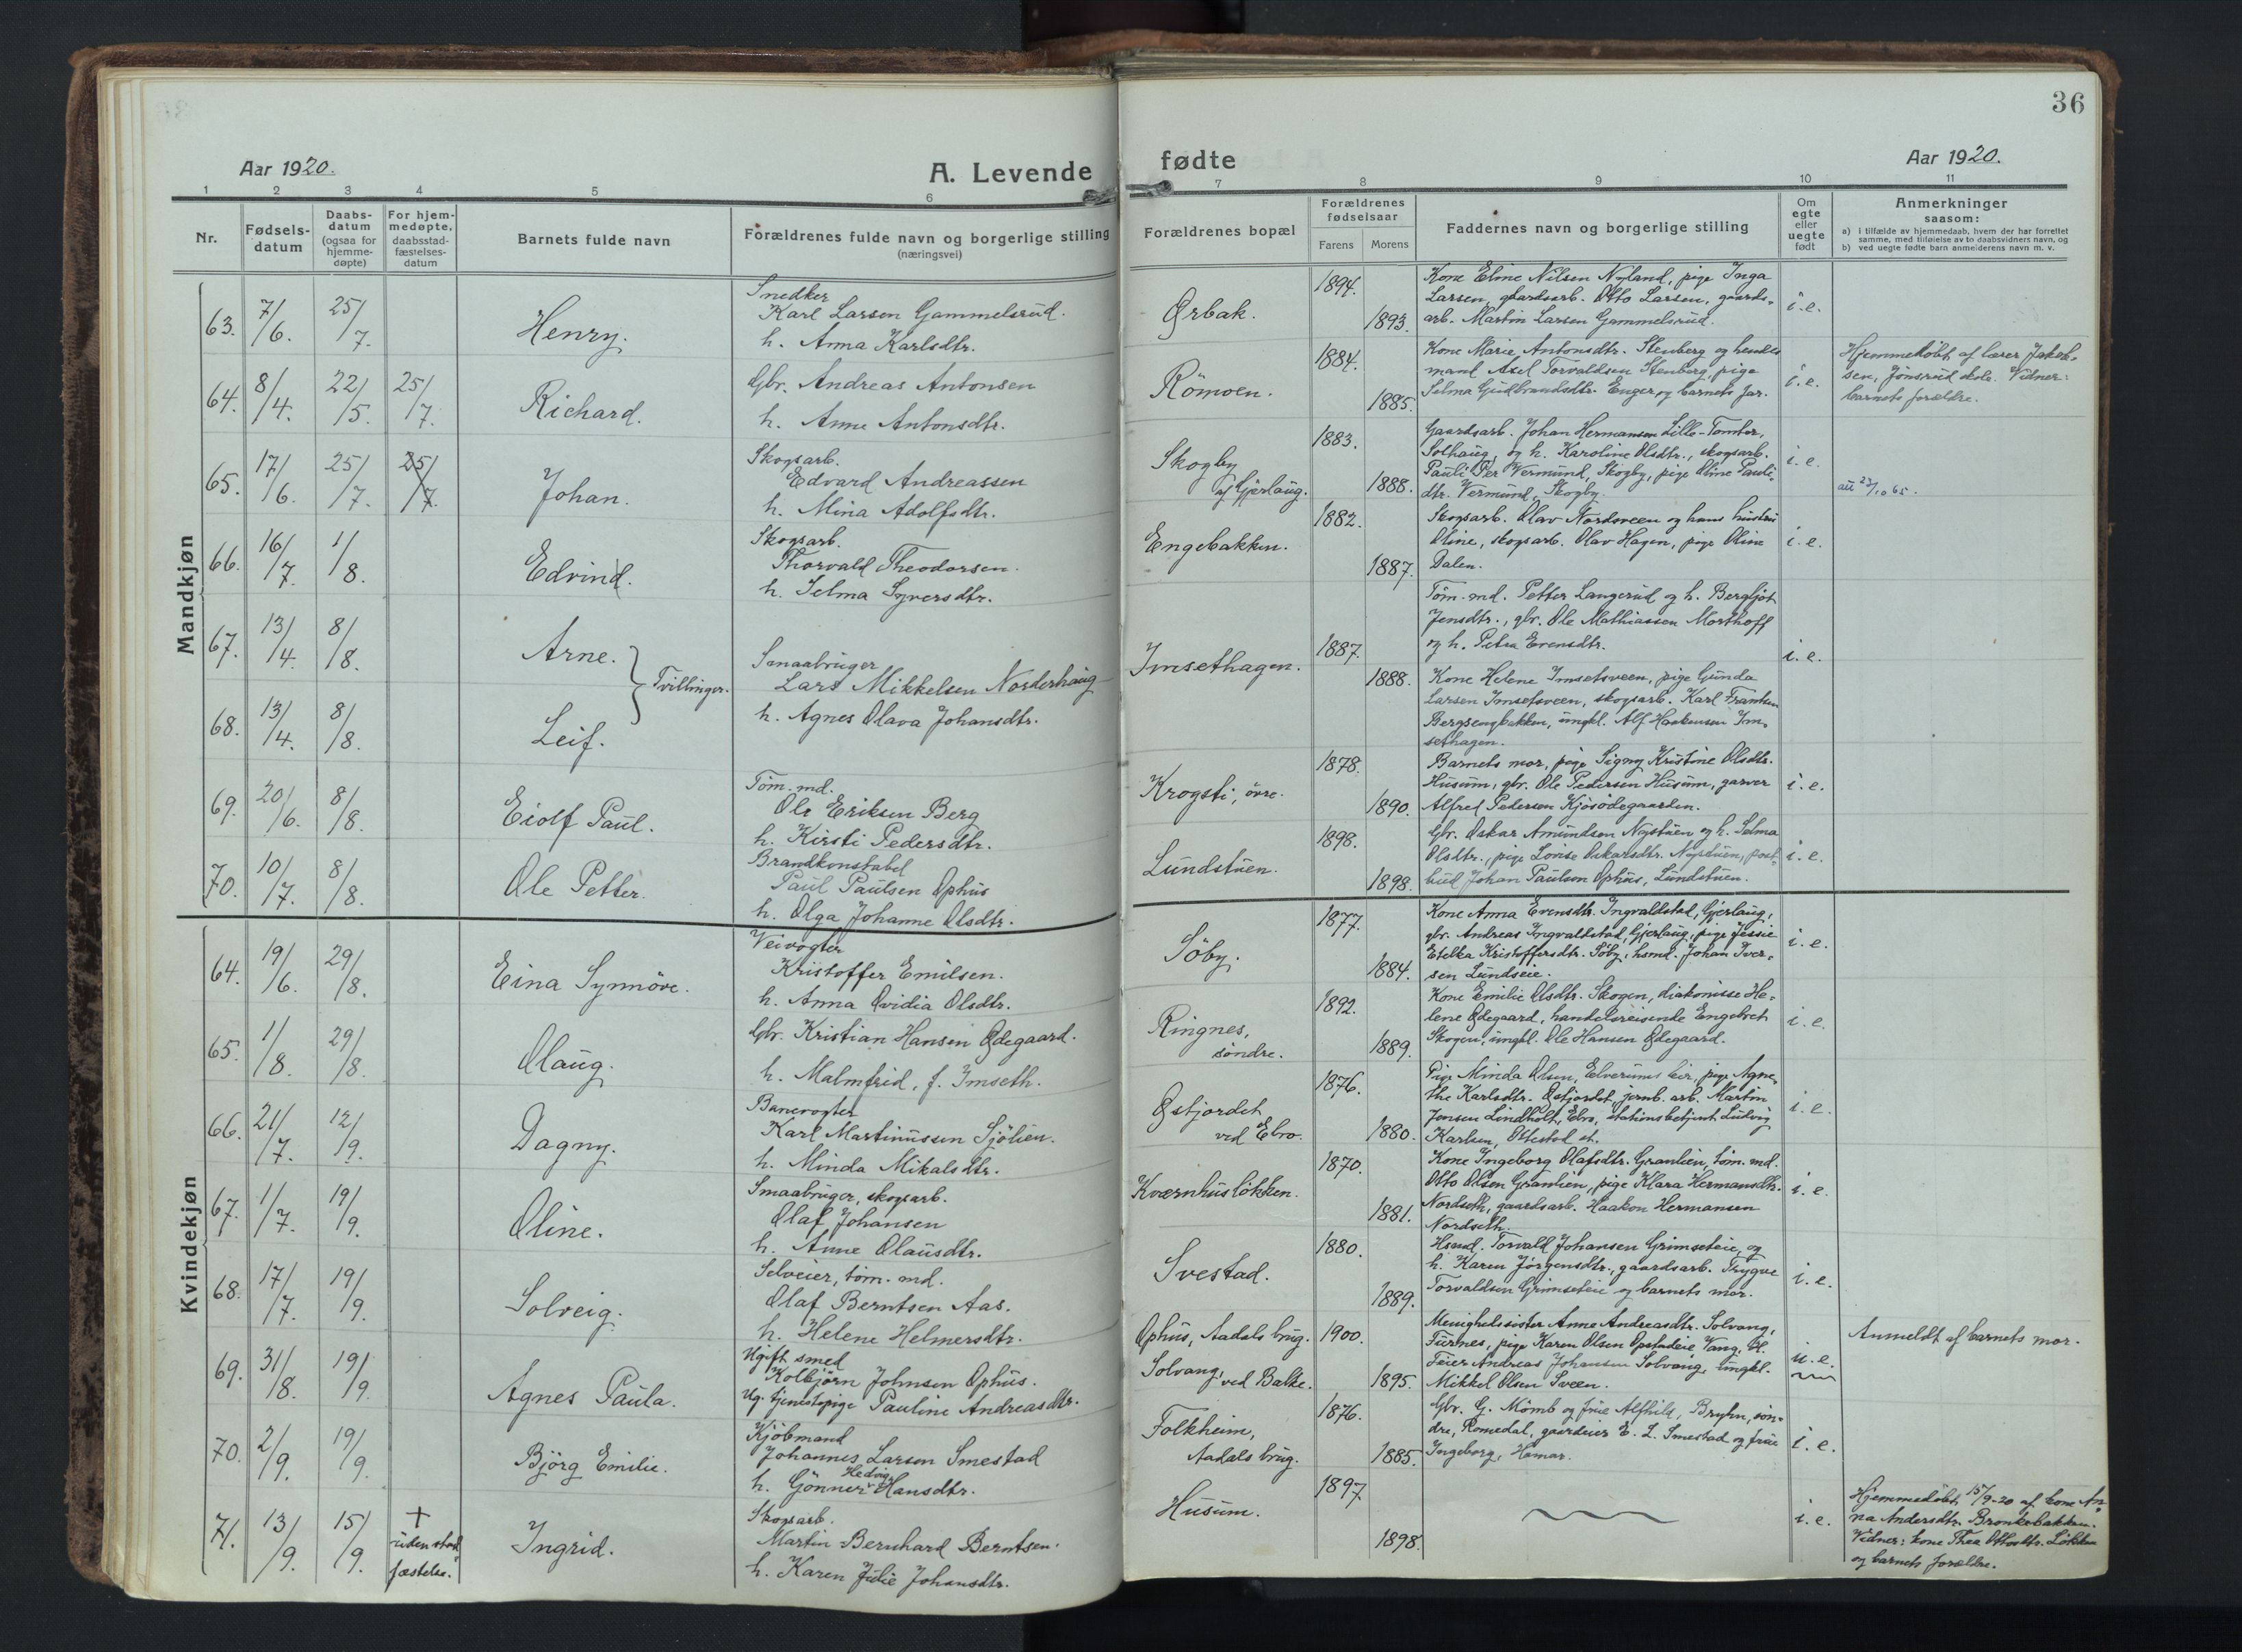 36
Aar 1920.
A. Levende fødte
Aar 1920.
1 2 3 4 5 6 7 8 9 10 11
Nr.
Fødsels-
datum
Daabs-
datum
(ogsaa for
hjemme-
døpte)
For hjem-
medøpte,
daabsstad-
fæstelses-
datum
Barnets fulde navn
Forældrenes fulde navn og borgerlige stilling
(næringsvei)
Forældrenes bopæl
Forældrenes
fødselsaar
Farens Morens
Faddernes navn og borgerlige stilling
Om
egte
eller
uegte
født
Anmerkninger
saasom:
a) i tilfælde av hjemmedaab, hvem der har forrettet
samme, med tilføielse av to daabsvidners navn, og
b) ved uegte fødte barn anmelderens navn m. v.
Mandkjøn
63. 7/6. 25/7. Henry.
Snedker
Karl Larsen Gammelsrud.
h. Anna Karlsdtr.
Ørbak. 1894. 1893.
Kone Eline Nilsen Nyland, pige Inga
Larsen, gaardsarb. Otto Larsen, gaards-
arb. Martin Larsen Gammelsrud.
i. e.
64. 8/4. 22/5. 25/7. Richard.
Gbr. Andreas Antonsen
h. Anne Antonsdtr.
Römoen. 1884. 1885.
Kone Marie Antonsdtr. Stenberg og hendes
mand Axel Torvaldsen Stenberg, pige
Selma Gudbrandsdtr. Enger og barnets far.
i. e.
Hjemmedöbt af lærer Jakob-
sen, Jönsrud skole. Vidner:
barnets forældre.
65. 17/6. 25/7. 25/7. Johan.
Skogsarb.
Edvard Andreassen
h. Mina Adolfsdtr.
Skogby
af Gjerlaug.
1883. 1888.
Gaardsarb. Johan Hermansen Lille-Tomter,
Solhaug, og h. Karoline Olsdtr., skogsarb.
Pauli Per Vermund, Skogby, pige Oline Pauli-
dtr. Vermund, Skogby.
i. e.
66. 16/7. 1/8. Edvind.
Skogsarb.
Thorvald Theodorsen.
h. Selma Syversdtr.
Engebakken. 1882. 1887.
Skogsarb. Olav Nordsveen og hans hustru
Oline, skogsarb. Olav Hagen, pige Oline
Dalen.
i. e.
67. 13/4. 8/8. Arne.
68. 13/4. 8/8. Leif.
Tvillinger.
Smaabruger
Lars Mikkelsen Norderhaug
h. Agnes Olava Johansdtr.
Imsethagen. 1887. 1888.
Töm. md. Petter Langerud og h. Bergljot
Jensdtr., gbr. Ole Mathiassen Morthoff
og h. Petra Evensdtr.
Kone Helene Imsetsveen, pige Gunda
Larsen Imsetsveen, skogsarb. Karl Frantsen
Bergsengbakken, ungkl. Alf Haakensen Im-
sethagen.
i. e.
69. 20/6. 8/8. Eiolf Paul.
Töm. md.
Ole Eriksen Berg
h. Kirsti Pedersdtr.
Krogsti, övre. 1878. 1890.
Barnets mor, pige Signy Kristine Olsdtr.
Husum, gbr. Ole Pedersen Husum, garver
Alfred Pedersen Kjösödegaarden.
i. e.
70. 10/7. 8/8. Ole Petter.
Brandkonstabel
Paul Paulsen Ophus
h. Olga Johanne Olsdtr.
Lundstuen. 1898. 1898.
Gbr. Oskar Amundsen Nystuen og h. Selma
Olsdtr., pige Lovise Oskarsdtr. Nystuen, post-
bud Johan Paulsen Ophus, Lundstuen.
i. e.
Kvindekjøn
64. 19/6. 29/8. Eina Synnöve.
Veivogter
Kristoffer Emilsen.
h. Anna Ovidia Olsdtr.
Söby. 1877. 1884.
Kone Anna Evensdtr. Ingvaldstad, Gjerlaug,
gbr. Andreas Ingvaldstad, Gjerlaug, pige Jessie
Etelka Kristoffersdtr. Söby, hsmd. Johan Iver-
sen Lundseie.
i. e.
65. 1/8. 29/8. Olaug.
Gbr. Kristian Hansen Ødegaard.
h. Malmfrid, f. Imseth.
Ringnes,
söndre.
1892. 1889.
Kone Emilie Olsdtr. Skogen, diakonisse He-
lene Ødegaard, handelsreisende Engebret
Skogen, ungkl. Ole Hansen Ødegaard.
i. e.
66. 21/7. 12/9. Dagny.
Banevogter
Karl Martinussen Sjölien.
h. Minda Mikalsdtr.
Østjordet
ved Elvo.
1876. 1880.
Pige Minda Olsen, Elverums leir, pige Agne-
the Karlsdtr. Østjordet, jernb. arb. Martin
Jensen Lindholt, Elvo, stationsbetjent Ludvig
Karlsen, Ottestad st.
i. e.
67. 1/7. 19/9. Oline.
Smaabruger, skogsarb.
Olaf Johansen
h. Anne Olausdtr.
Kværnhuslökken. 1870. 1881.
Kone Ingeborg Olafsdtr. Granlien, töm. md.
Otto Olsen Granlien, pige Klara Hermansdtr.
Nordseth, gaardsarb. Haakon Hermansen
Nordseth.
i. e.
68. 17/7. 19/9. Solveig.
Selveier, töm. md.
Olaf Berntsen Aas.
h. Helene Helmersdtr.
Svestad. 1880. 1889.
Hsmd. Torvald Johansen Grimseteie, og
h. Karen Jörgensdtr., gaardsarb. Trygve
Torvaldsen Grimseteie og barnets mor.
i. e.
69. 31/8. 19/9. Agnes Paula.
Ugift smed
Kolbjörn Johnsen Ophus.
Ug. tjenestepige Pauline Andreasdtr.
Ophus, Aadals brug. 1900.
Solvang, ved Balke. 1895.
Menighetssöster Anne Andreasdtr. Solvang,
Furnes, pige Karen Olsen Opstadeie, Vang, H.
Feier Andreas Johansen Solvang, ungkl.
Mikkel Olsen Sveen.
u. e.
Anmeldt af barnets mor.
70. 2/9. 19/9. Björg Emilie.
Kjöbmand
Johannes Larsen Smestad
h. Gönner Hedvig Hansdtr.
Folkheim,
Aadals brug.
1876. 1885.
Gbr. G. Mömb og frue Alfhild, Bryhn, sön-
dre, Romedal, gaardeier E. L. Smestad og frue
Ingeborg, Hamar.
i. e.
71. 13/9. 15/9. + uden stad-
fæstelse.
Ingrid.
Skogsarb.
Martin Bernhard Berntsen.
h. Karen Julie Johansdtr.
Husum. 1897. 1898.
i. e.
Hjemmedöbt 15/9-20 af kone An-
na Andersdtr. Bronkebakken.
Vidner: kone Thea Ottosdtr. Lökken
og barnets forældre.